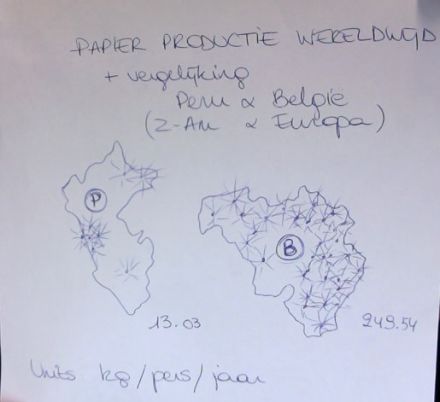 PAPIER PRODUCTIE WERELDWIJD
+ vergelijking
Peru & België
(Z-Am & Europa)
P
B
13.03
249.54
Units kg/pers/jaar